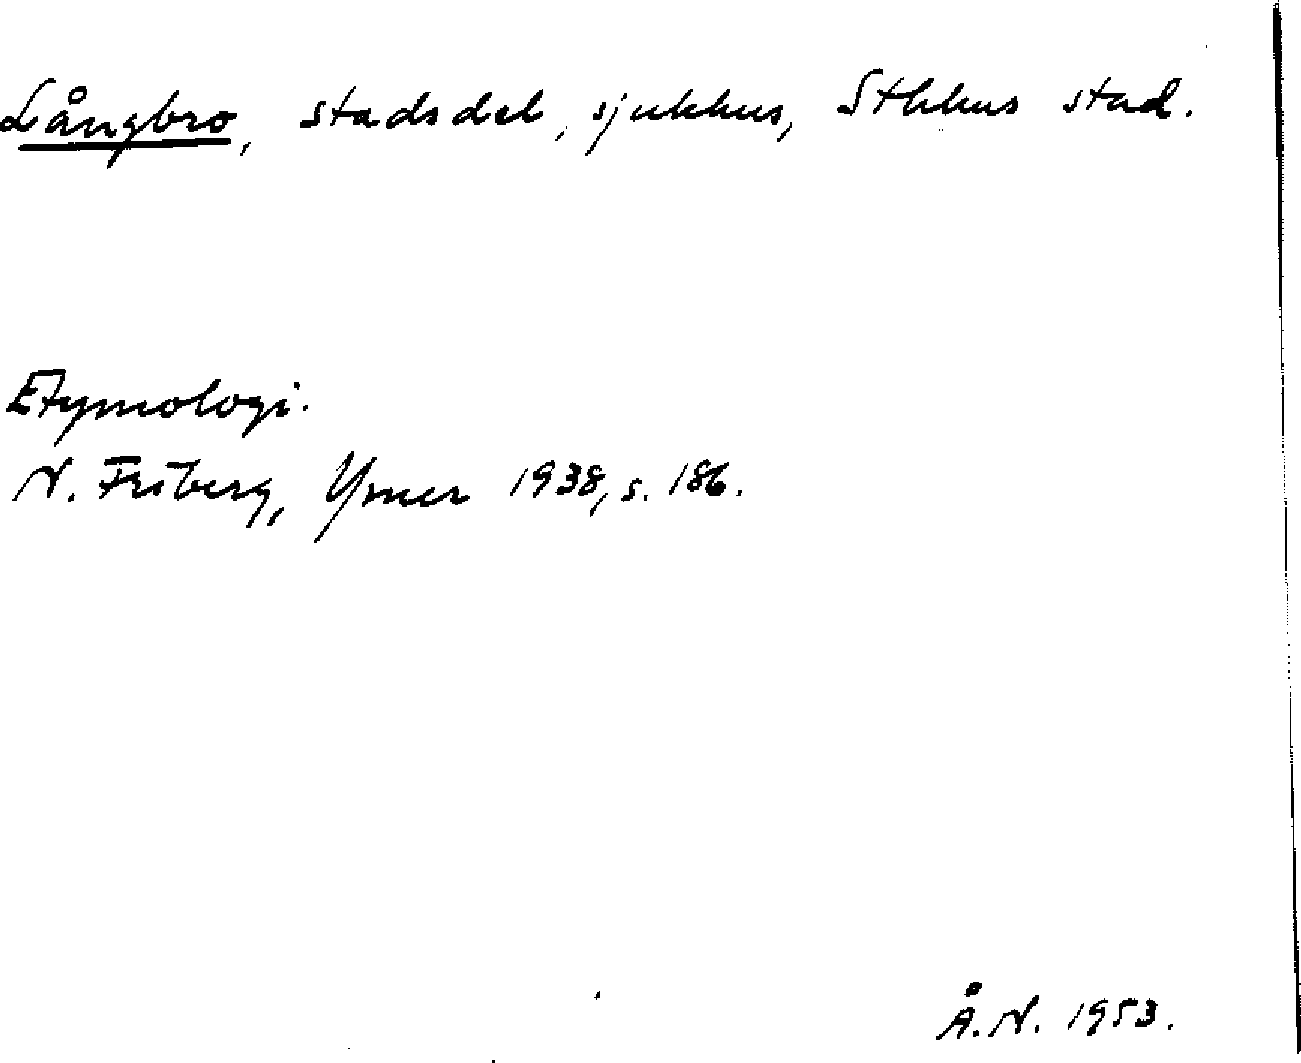 Långbro, stadsdel, sjukhus, Sthlms stad.
Etymologi.
N. Friberg, Ymer 1938, s. 186.
Å. N. 1953.